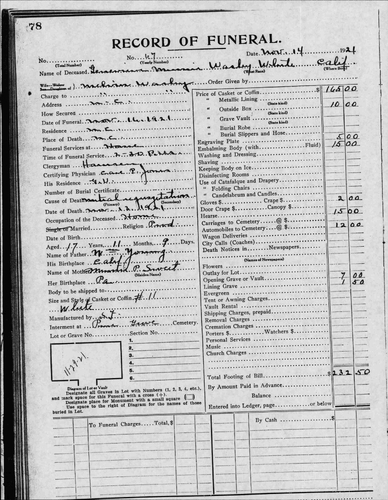 78
RECORD OF FUNERAL.
No. 67
(Total Number) (Yearly Number)
Date Nov. 14 1921
Name of Deceased Minnie Wasley White Calif
(What Race) (Where Born)
Wasley
Order Given by
Charge to
Price of Casket or Coffin $165 00
Address M.C.
" Metallic Lining
(State Kind)
How Secured
" Outside Box 10 00
(State Kind)
Date of Funeral Nov. 16. 1921
" Grave Vault
(State Kind)
Residence M.C.
" Burial Robe
(State Kind)
Place of Death M.C.
" Burial Slippers and Hose
Funeral Services at Home
Engraving Plate 5 00
Time of Funeral Service 2:30 P.M.
Embalming Body (with Fluid) 15 00
Clergyman
Washing and Dressing
Certifying Physician Jones
Shaving
His Residence
Keeping Body on Ice
Number of Burial Certificate
Disinfecting Rooms
Cause of Death Mitral regurgitation
Use of Catafalque and Drapery
Date of Death Nov.
" Folding Chairs
Occupation of Deceased Home
" Candelabrum and Candles
Single or Married Religion Prod
Gloves $ Crape $ 2 00
Date of Birth
Door Crape $ Canopy $
Aged 17 Years 11 Months 9 Days.
Hearse 15 00
Name of Father Wm Young
Carriages to Cemetery @ $
His Birthplace Calif
Automobiles to Cemetery @ $ 12 00
Name of Mother P. Sweet
(Maiden Name)
Wagon Deliveries
Her Birthplace Pa
City Calls (Coaches)
Body to be shipped to
Death Notices in Newspapers
Size and Style of Casket or Coffin #11
Flowers
White
Outlay for Lot
Manufactured by
Opening Grave or Vault 7 00
Interment at Pine Grove Cemetery.
Lining Grave 1 50
Lot or Grave No. Section No.
Evergreen
Tent or Awning Charges
1.
Vault Rental
2.
Shipping Charges, prepaid
3.
Removal Charges
4.
Cremation Charges
5.
Porters $ Watchers $
6.
Personal Services
Music
Church Charges
Diagram of Lot or Vault
Total Footing of Bill $232 50
Designate all Graves in Lot with Numbers (1, 2, 3, 4, etc.),
and mark space for this Funeral with a cross (+).
By Amount Paid in Advance
Designate place for Monument with a small square
Balance
Use space to the right of Diagram for the names of those
buried in Lot.
Entered into Ledger, page or below
To Funeral Charges, Total $